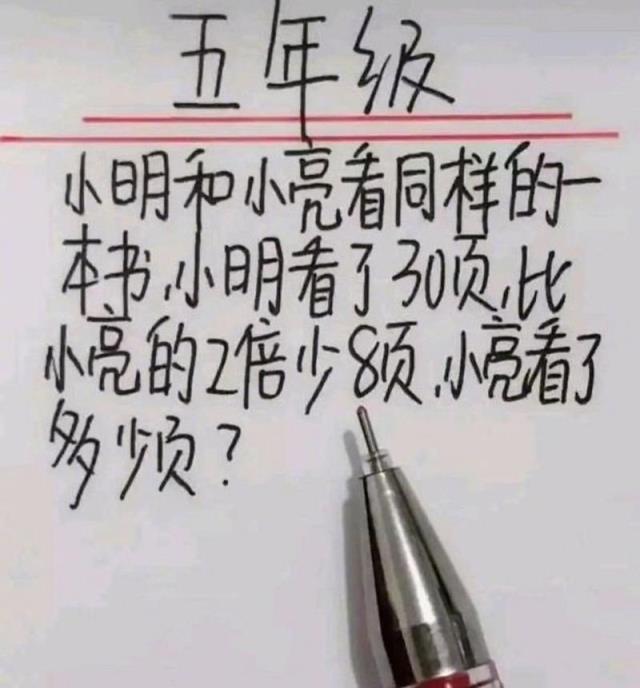 五年级
小明和小亮看同样的一
本书,小明看了30页,比
小亮的2倍少8页,小亮看了
多少页?